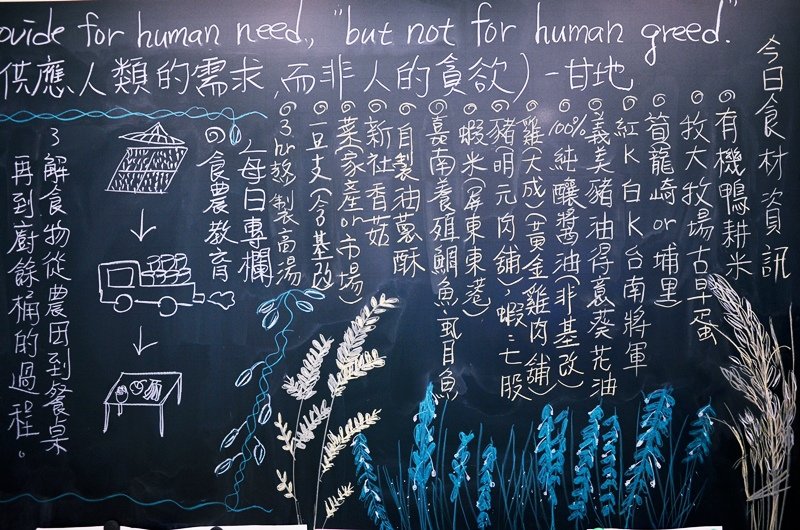 ovide for human need., "but not for human greed."
供應人類的需求,而非人的貪欲)-甘地
今日食材資訊
◎有機鴨耕米
◎牧大牧場古早蛋
◎筍(龍崎or埔里)
◎紅K白K台南將軍
◎義美豬油得意葵花油
◎100%純釀醬油(非基改)
◎雞(大成)(黃金雞肉舖)
◎豬(明元肉舖)蝦:七股
◎蝦米(屏東東港)
◎嘉南養殖鯛魚.虱目魚
◎自製油蔥酥
◎新社香菇
◎菜(家產or市場)
◎豆支(基改)
◎3hr熬製高湯
每日專欄
◎食農教育
了解食物從農田到餐桌
再到廚餘桶的過程。